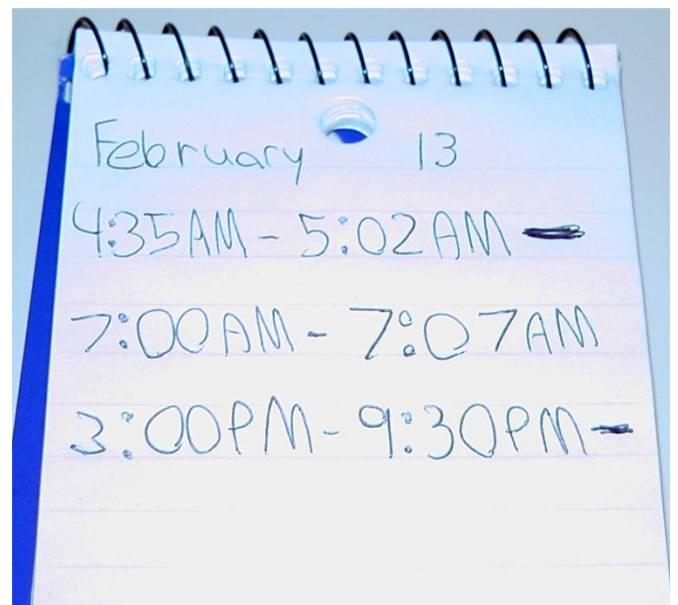 February 13
4:35AM - 5:02AM -
7:00AM - 7:07AM
3:00PM - 9:30PM -